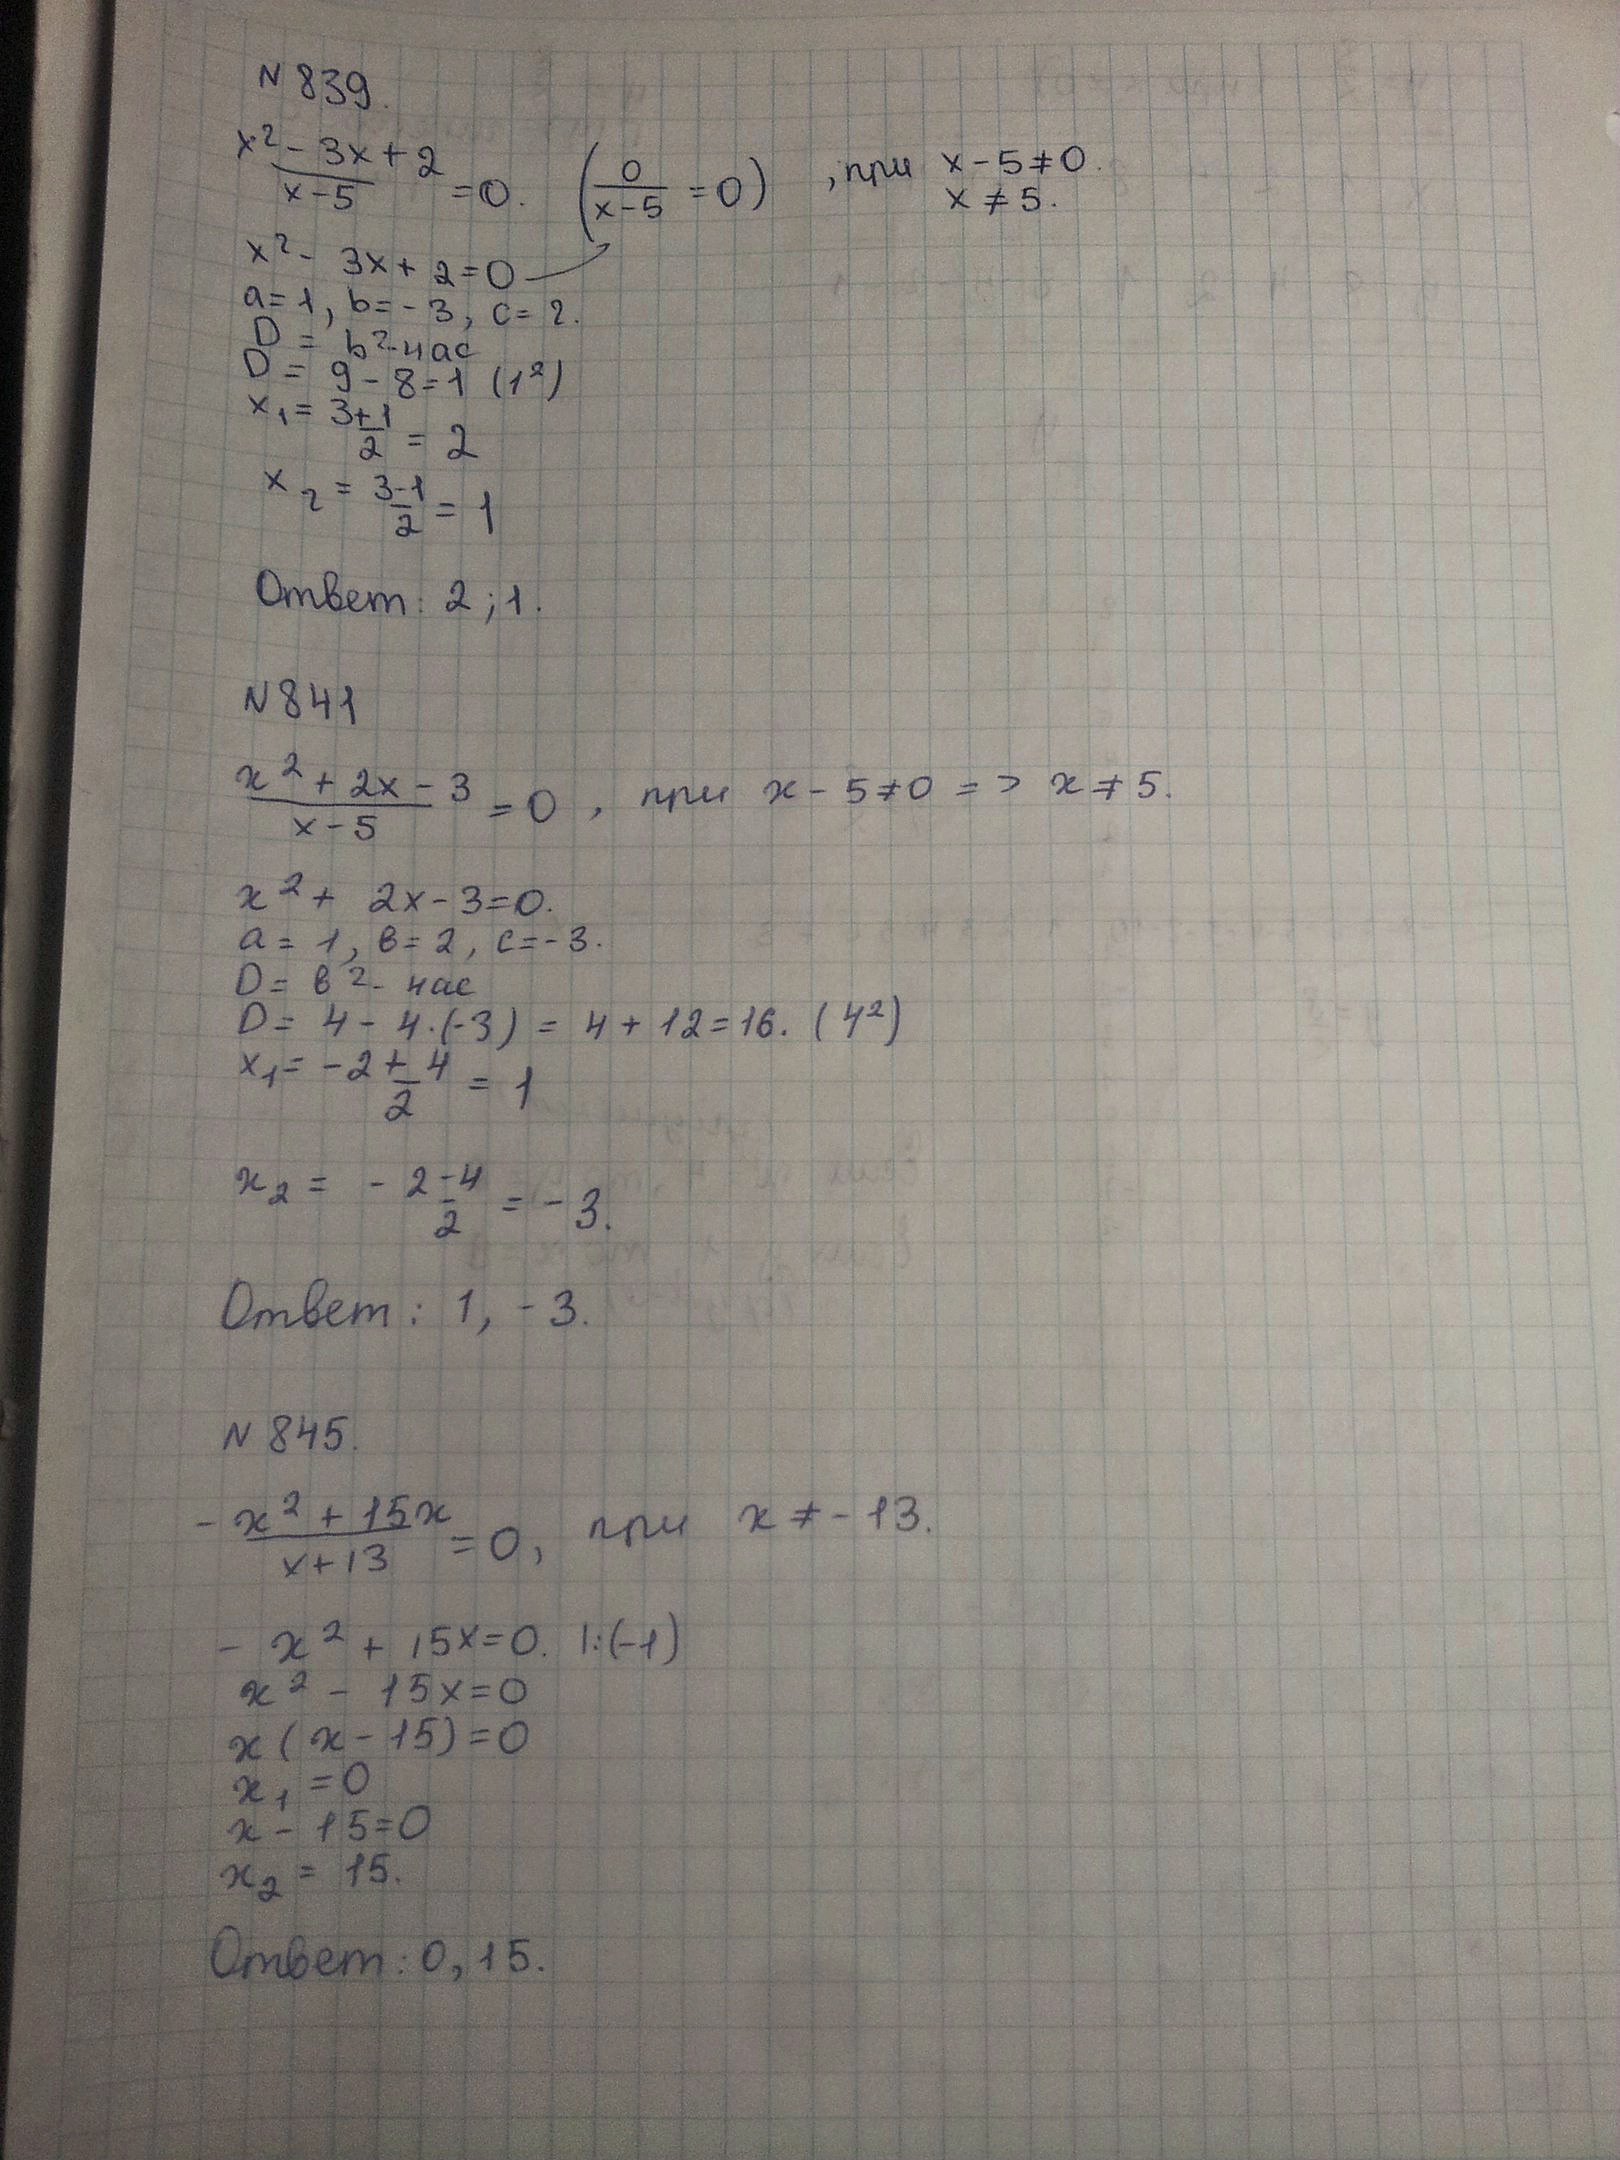 N 839.
x² - 3x + 2 / x - 5 = 0. (0 / x - 5 = 0) , при x - 5 ≠ 0.
x ≠ 5.
x² - 3x + 2 = 0
a = 1, b = - 3, c = 2.
D = b² - 4ac
D = 9 - 8 = 1 (1²)
x₁ = 3 + 1 / 2 = 2
x₂ = 3 - 1 / 2 = 1
Ответ: 2 ; 1.
N 841
x² + 2x - 3 / x - 5 = 0 , при x - 5 ≠ 0 => x ≠ 5.
x² + 2x - 3 = 0.
a = 1, в = 2, c = - 3.
D = в² - 4ac
D = 4 - 4·(-3) = 4 + 12 = 16. (4²)
x₁ = - 2 + 4 / 2 = 1
x₂ = - 2 - 4 / 2 = - 3.
Ответ: 1, - 3.
N 845.
- x² + 15x / x + 13 = 0, при x ≠ - 13.
- x² + 15x = 0. |:(-1)
x² - 15x = 0
x ( x - 15) = 0
x₁ = 0
x - 15 = 0
x₂ = 15.
Ответ: 0, 15.